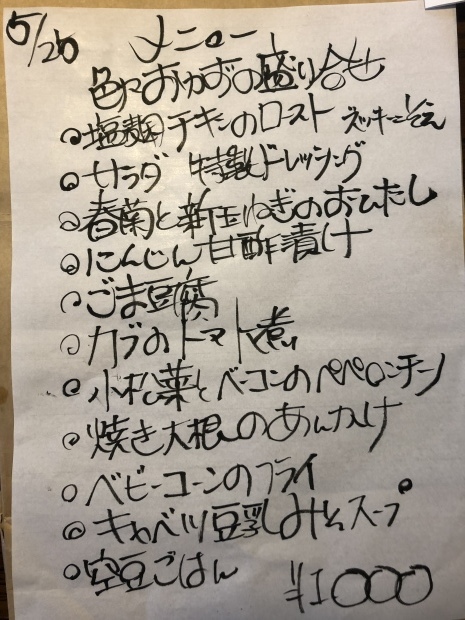 5/26 メニュー
色々おかずの盛り合せ
◎塩麹チキンのロースト ズッキーニそえ
◎サラダ 特製ドレッシング
◎春菊と新玉ねぎのおひたし
◎にんじん甘酢漬け
○ごま豆腐
◎カブのトマト煮
◎小松菜とベーコンのペペロンチーノ
◎焼き大根のあんかけ
○ベビーコーンのフライ
◎キャベツ豆乳みそスープ
○空豆ごはん ¥1000